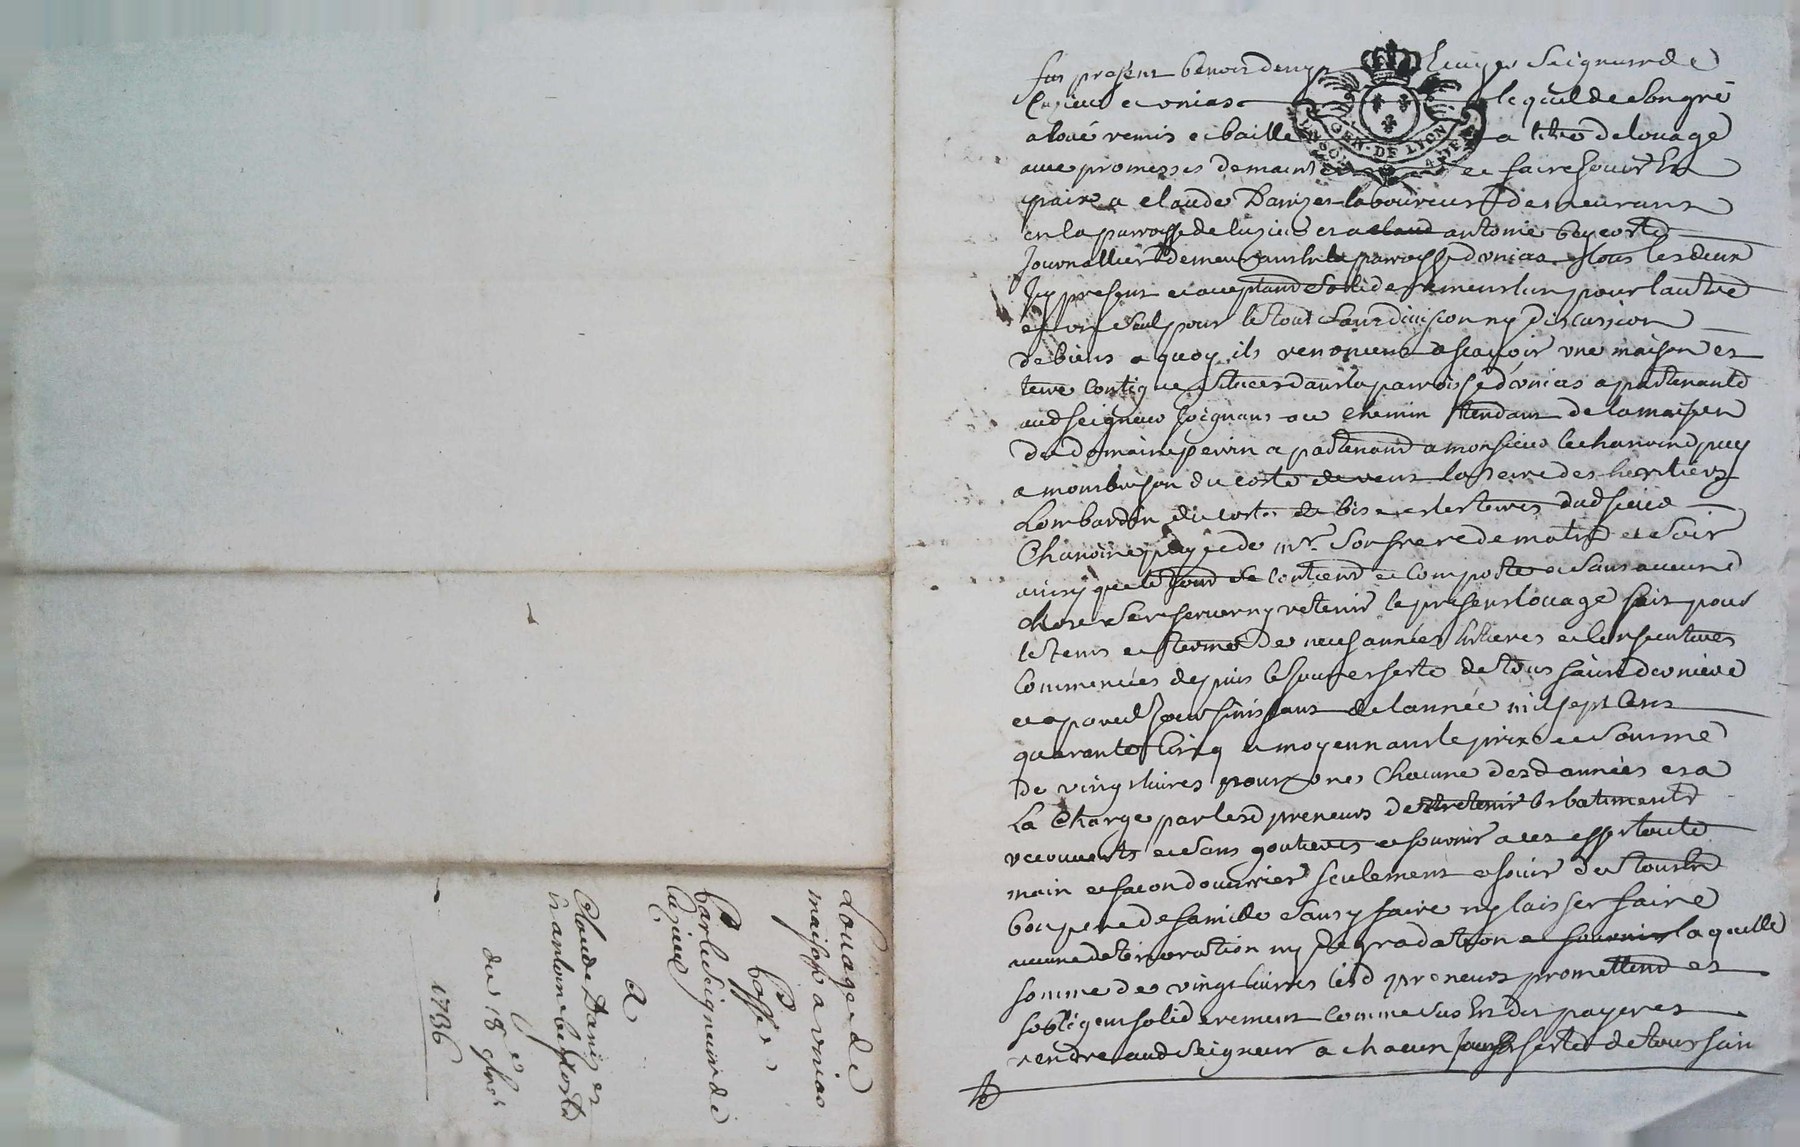 fut present benoit denys Ecuyer Seigneur de
Luzieu et unias lequel de son gré
a loué remis et baille a titre de louage
avec promesses de maintenir et faire jouir En
paix a claude Danizet laboureur demeurant
en la parroisse de luzieu et a claud antoine beycoste
Journallier demeurant en la parroisse d'unias tous les deux
Icy present et acceptand solidairement lun pour lautre
et un seul pour le tout sans division ny discussion
de biens a quoy ils renoncent ascavoir une maison et
terre contigue situées dans la parroisse d'unias apartenante
aud seigneur joignant au chemin tendant de la maison
du domaine perrin apartenand a monsieur le chanoine puy
a montbrison du costé de vent la terre des heritiers
Lombardin du costé de bise et les terres dud sieur
Chanoine puy et de mr. son frere de matin et soir
ainsy que le fond se contiend et comporte et sans aucune
chose se reserver ny retenir le present louage fait pour
le tems et terme de neuf années entieres et consecutives
commencées depuis le jour et feste de tous saint derniere
et a pareil jour finissant de l'année mil sept cens
quarante cinq et moyennant le prix et somme
de vingt livres pour chacune desd années et a
La charge par lesd preneurs de entretenir les batiments
recouverts et sans goutieres et fournir a cet effet toute
main et facon d'ouvrier seulement et jouir du tout En
bon pere de famille sans y faire ny laisser faire
aucune deterioration ny degradation laquelle
somme de vingt livres lesd preneurs promettend et
sobligent soliderement comme sus est dit payer et
rendre aud seigneur a chacun jour et feste de toussain
GEN. DE LYON
Louage de
maison a unias
Passé
Par le Seigneur de
Luzieu
A
Claude Danizet
et antoine beycoste
du 18 9bre
1736